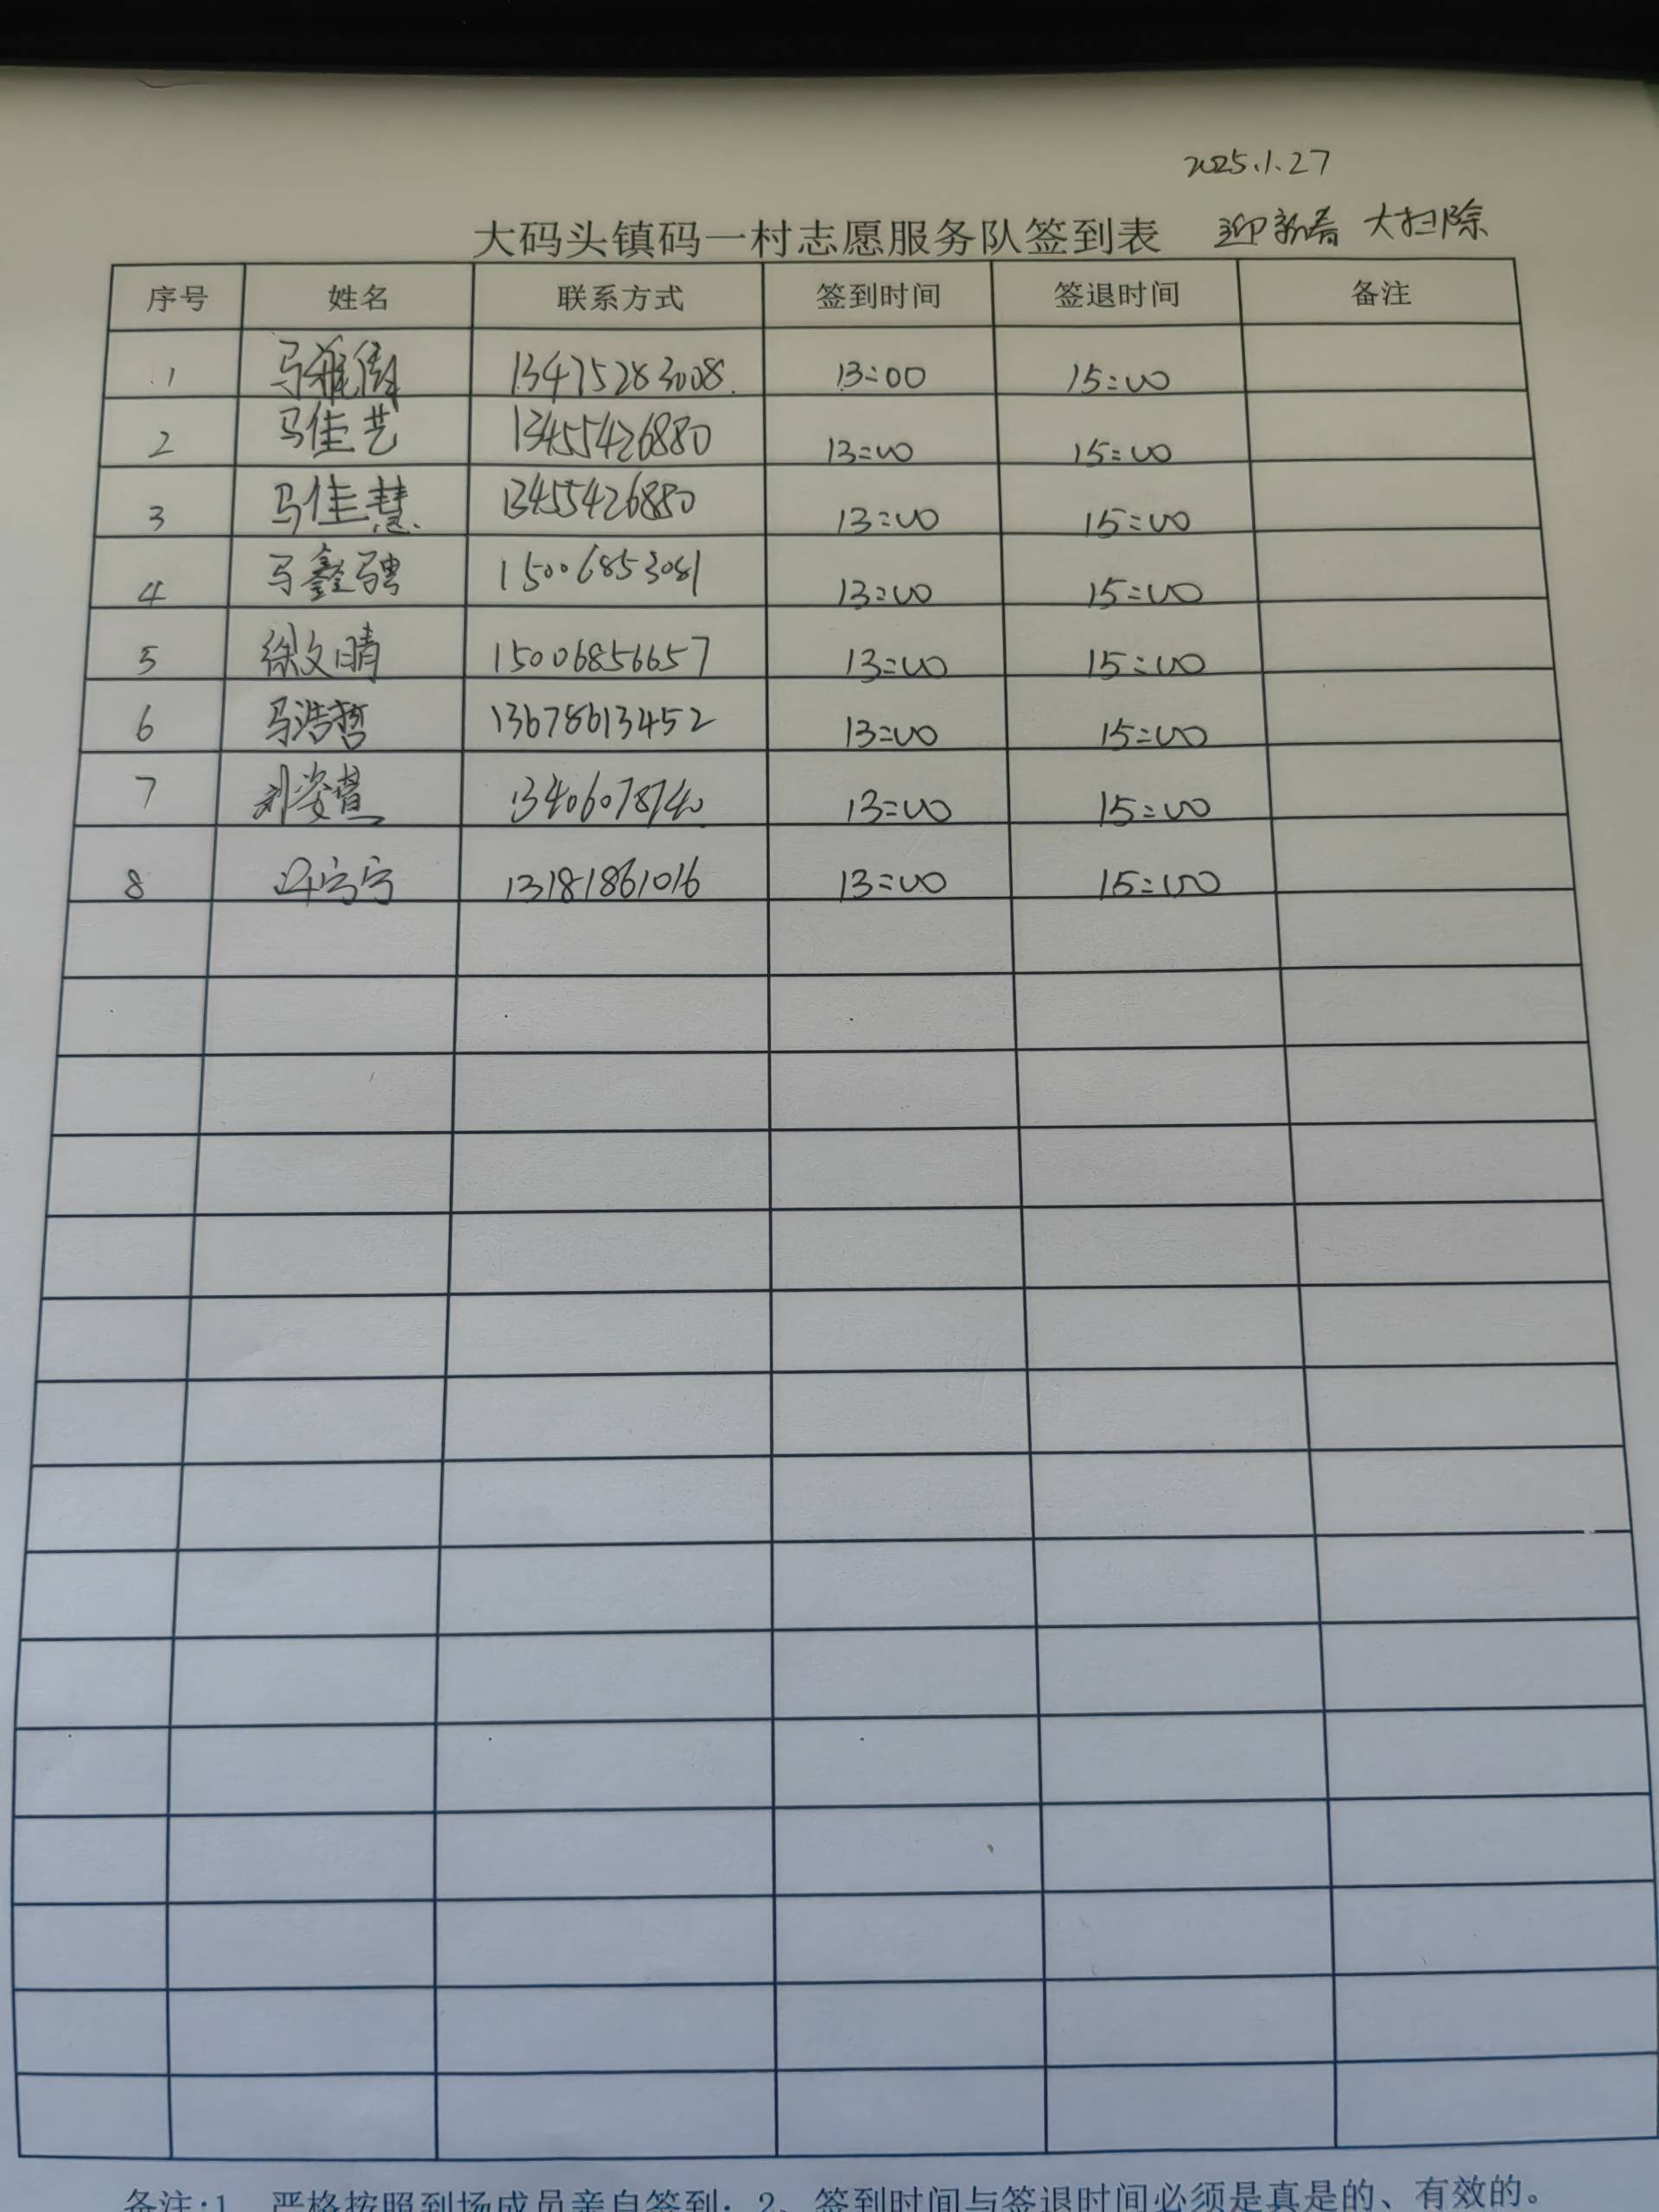 2025.1.27
大码头镇码一村志愿服务队签到表 迎新春 大扫除
序号 姓名 联系方式 签到时间 签退时间 备注
1 马 13475283008 13:00 15:00
2 马佳艺 13455426880 13:00 15:00
3 马佳慧 13455426880 13:00 15:00
4 马鑫骋 15006853081 13:00 15:00
5 徐文晴 15006856657 13:00 15:00
6 马浩哲 13678613452 13:00 15:00
7 刘姿萱 13406078740 13:00 15:00
8 13181861016 13:00 15:00
备注:1、严格按照到场成员亲自签到;2、签到时间与签退时间必须是真是的、有效的。